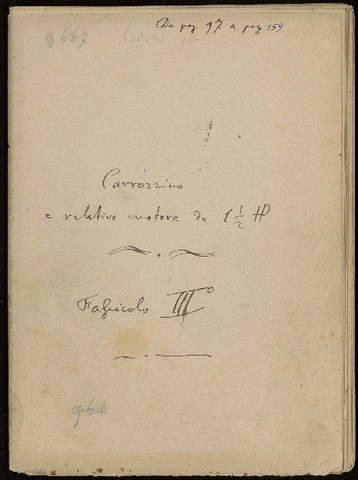 Da pag 97 a pag 159
9667
Carrozzino
e relativo motore da 1 1/2 HP
Fascicolo III°
966